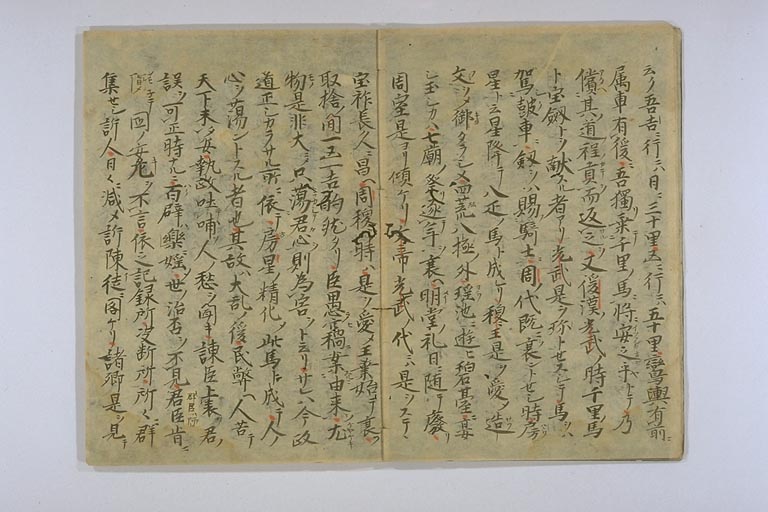 云ク吾吉ニ行ニハ日ニ三十里凶ニ行ニハ五十里鸞輿有前
属車有後吾獨乗千里ノ馬将安之乎トテ乃
償其道程貢而返之又後漢光武時千里馬
ト宝剱トヲ献スル者アリ光武是ヲ珎トセスシテ馬ヲハ
駕鼓車ニ剱ヲハ賜騎士周代既ニ衰ントセシ時房
星ト云星降テ八疋ノ馬ト成レリ穆王是ヲ愛シ造
父ヲシテ御タラシメ四荒八極ノ外瑶池ニ遊ヒ碧臺ニ宴
シ玉シカハ七廟ノ祭逐年ヲ衰ヘ明堂ノ礼日ニ随テ廢
周室是ヨリ傾ケリ文帝光武ノ代ニハ是ヲステヽ
宝祚長ク人昌ヘ周穆ノ時ハ是ヲ愛シメ王業始テ衰フ
取捨ノ間一凶一吉的然タリ臣愚竊案由来ニ尤
物是非大ニシ只蕩君心則為害ヲト云リサレハ今政
道正シカラサルノ所ニ依テ房星ノ精化シ此馬ト成テ人ノ
心ヲ蕩サントスル者也其故ハ大乱ノ後民弊ヘ人苦テ
天下未安執政吐哺ヲ人ノ愁ヲ聞キ諫臣上表ヲ君ノ
誤ヲ可正時ナルニ百辟ハ樂婬シテ世ノ治否ヲ不見君臣ハ旨ニ
阿テ国ノ安危ヲ不言依之記録所决断所ニ日々群
集セシ訴人日々ニ減シメ訴陳徒ニ閣ケリ諸卿是ヲ見テ